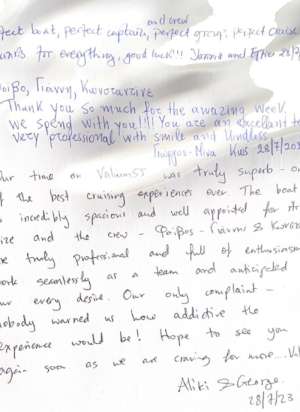 and crew
perfect captain, perfect group! Perfect cruise
for everything, good luck!!! Jannis and
Φοίβο, Γιάννη, Κωνσταντίνε
Thank you so much for the amazing week
we spend with you!!!! You are an excellent
very professional with smile and kindless
28/7/20
our time on Valium55 was truly superb -
the best cruising experiences ever The boat
incredibly spacious and well appointed for its
size and the crew - Φοίβος - Γιάννης & Κωνστ
are truly professional and full of enthusiasm
work seamlessly as a team and anticipated
our every desire. Our only complaint -
nobody warned us how addictive the
experience would be! Hope to see you
again soon as we are craving for more
Aliki & George
28/7/23